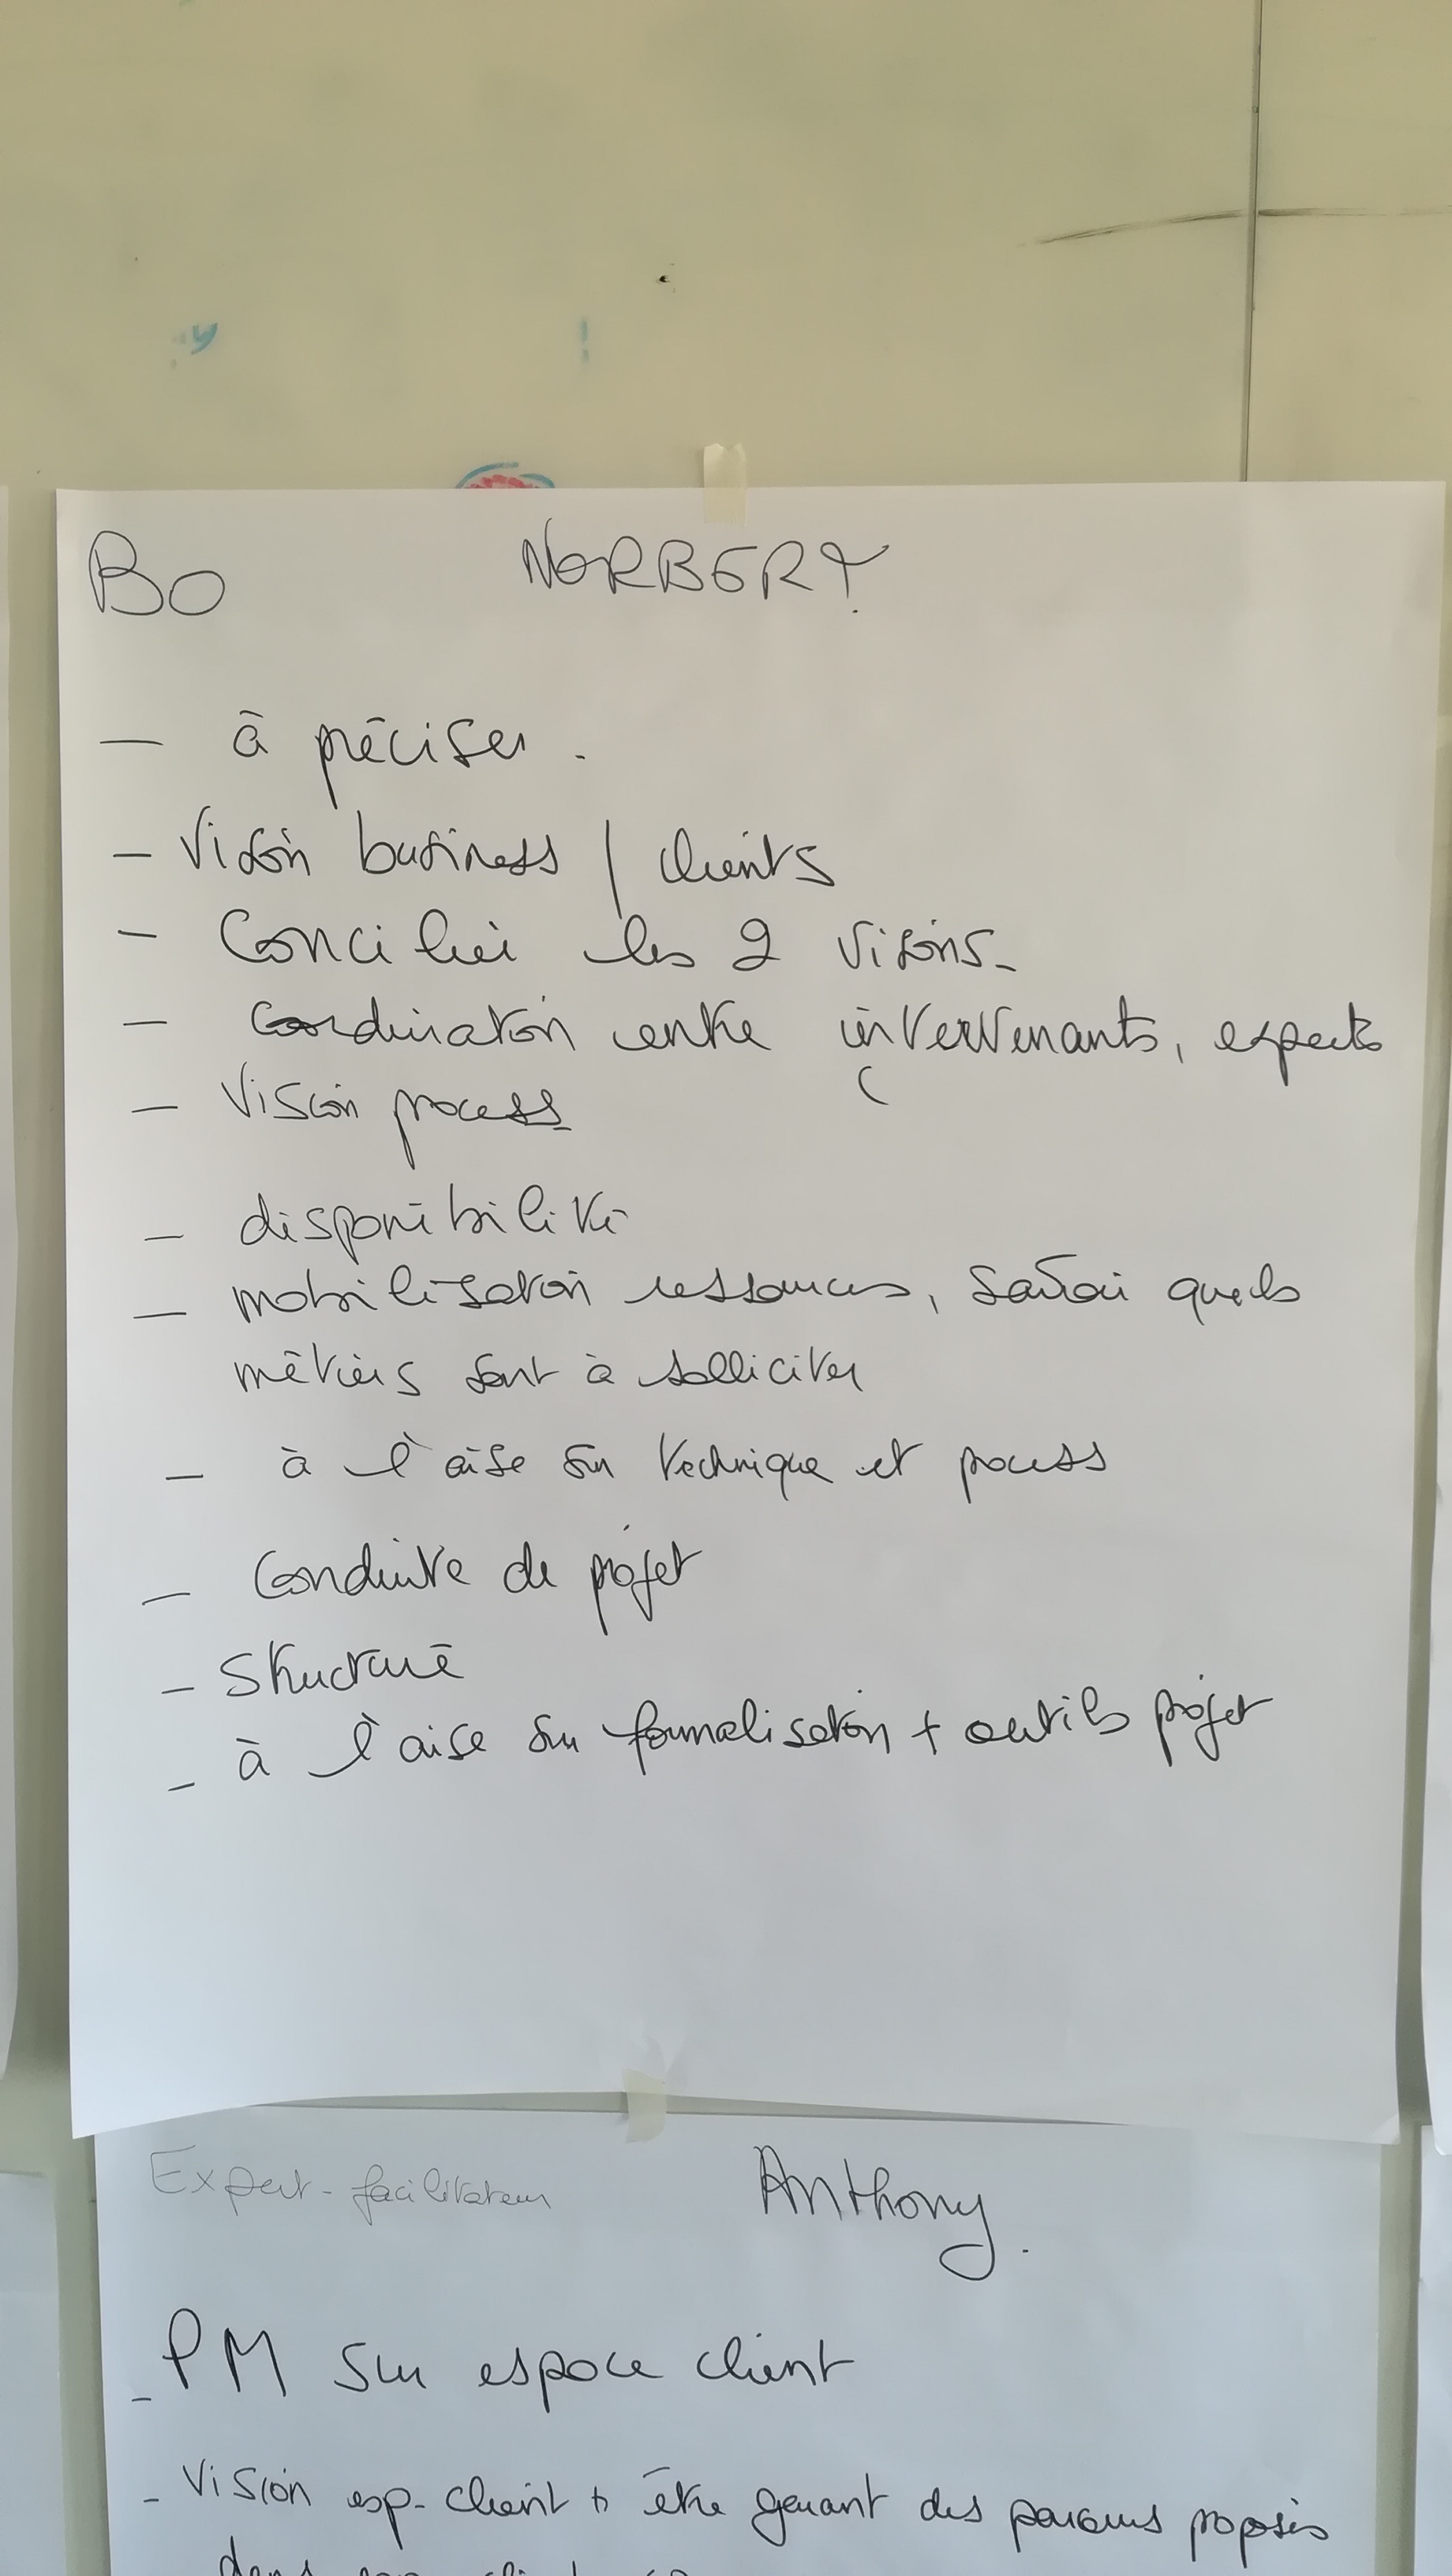 BO NORBERT
— à préciser.
- Vision business / clients
- Concilier les 2 visions-
- Coordination entre intervenants, experts
- Vision process
- disponibilité
- mobilisation ressources, savoir quels
métiers sont à solliciter
- à l'aise sur technique et process
- Conduite de projet
- Structuré
- à l'aise sur formalisation + outils projet
Expert-facilitateur Anthony.
- PM sur espace client
- Vision esp-client + être garant des parcours proposés